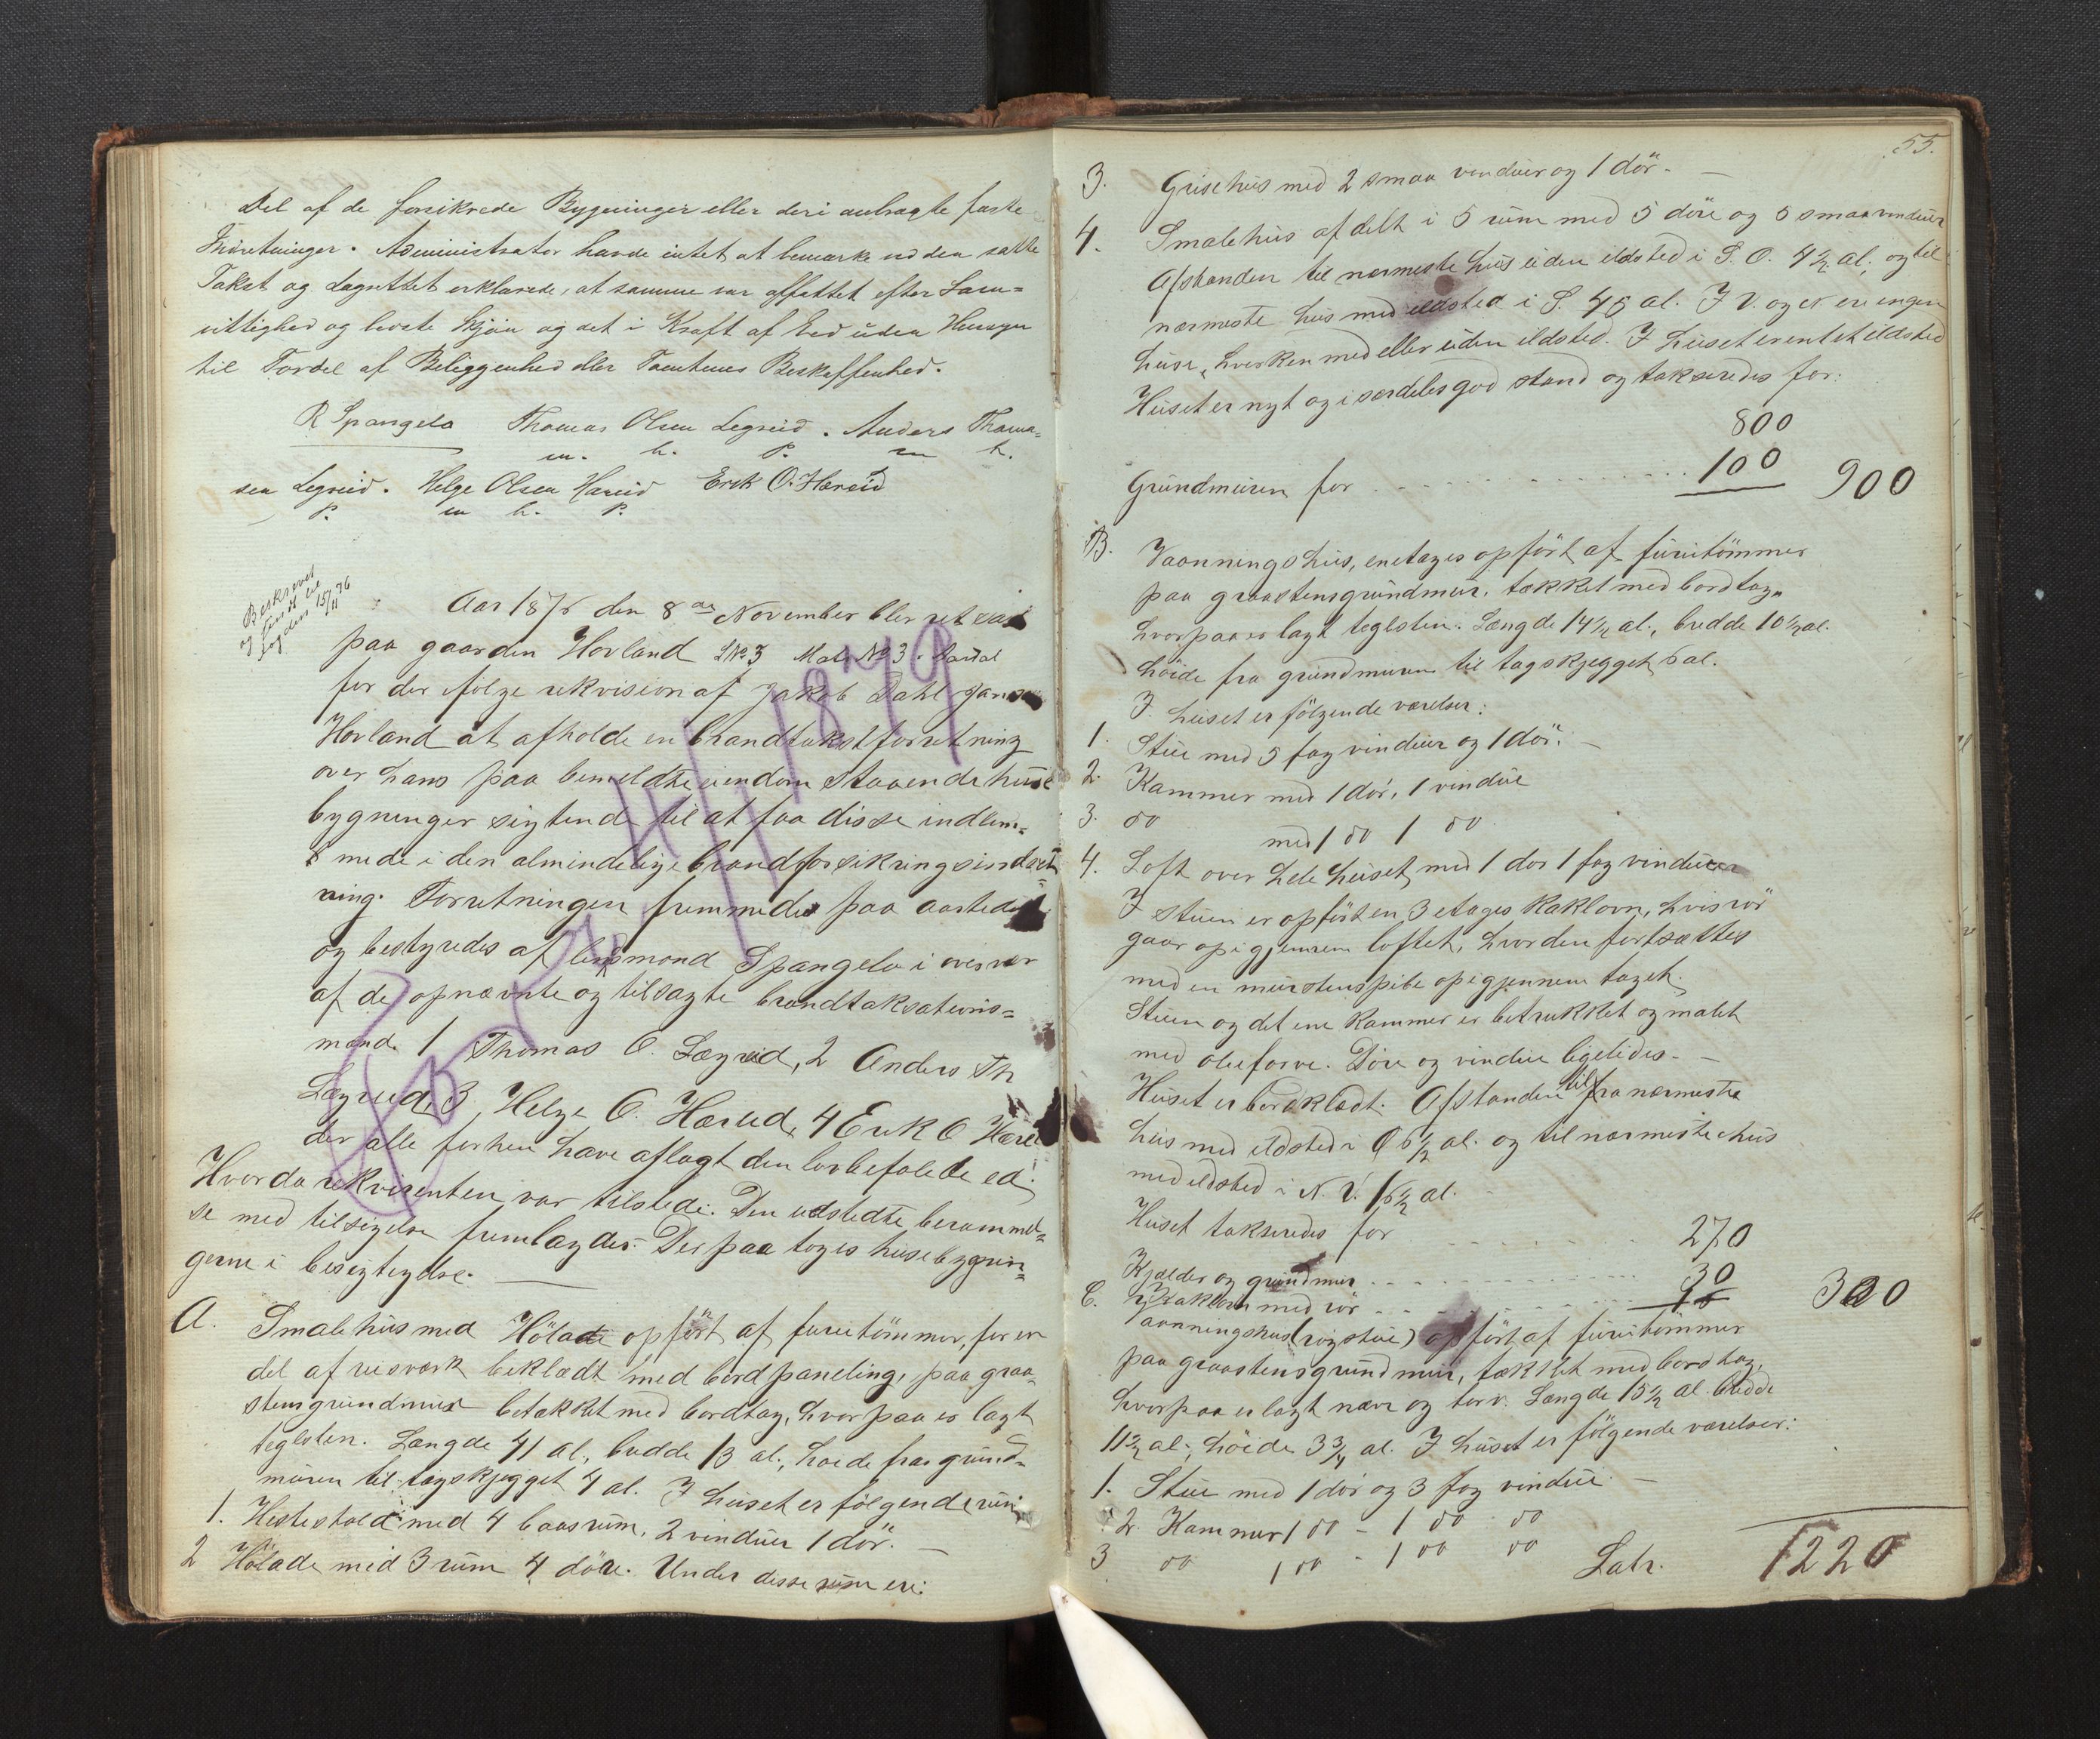 Del af de forsikrede Bygninger eller deri anbragte faste
Indretninger. Administrator havde intet at bemærke ved den satte
Takst og Lagrettet erklærede, at samme var affattet efter Sam=
vittighed og bedste Skjøn og det i Kraft af Eed uden Hensyn
til Fordel af Beliggenhed eller Tomternes Beskaffenhed.
R Spangelo Thomas Olsen Legreid. Anders Thoma=
m. h. P. m h.
sen Legreid. Helge Olsen Hareid Erik O. Hæreid
P. m h. P.
Beskrevet
og sendt
fogden 15/11 76
Aar 1876 den 8de November blev ret sat
paa gaarden Hovland LNo 3 Matr No 3.
for der ifølge rekvision af Jakob Dahl Jansen
Hovland at afholde en brandtakstforretning
over hans paa bemeldte eiendom staaende huse
bygninger sigtende til at faa disse indlem=
mede i den almindelige brandforsikringsindret
ning. Forretningen fremmedes paa aastedet
og bestyredes af lensmand Spangelo i overvær
af de opnævnte og tilsagte brandtaksations=
mænd 1 Thomas O. Lægreid, 2 Anders Th
Lægreid, 3 Helge O. Hæreid, 4 Erik O Hæreid
der alle forhen have aflagt den lovbefalede ed.
Hvorda rekvirenten var tilstede. Den udstedte berammel=
se med tilsigelse fremlagdes. Derpaa toges husebygnin=
gerne i besigtigelse.
A. Smalehus med Hölade opfört af furutömmer, for en
del af reisværk beklædt med bordpaneling, paa graa=
stensgrundmur betækket med bordtag, hvorpaa er lagt
teglsten. Længde 41 al., bredde 13 al., høide fra grund=
muren til tagskjægget 4 al. I huset er følgende rum
1. Hestestald med 4 baasrum, 2 vinduer 1 dör.
2 Hölade med 3 rum 4 döre. Under disse rum ere:
55.
3. Grisehus med 2 smaa vinduer og 1 dör.
4. Smalehus afdelt i 5 rum med 5 döre og 5 smaa vinduer
Afstanden til nærmeste hus uden ildsted i S. O. 4 1/2 al., og til
nærmeste hus med ildsted i S. 45 al. I V. og N ere ingen
huse, hverken med eller uden ildsted. I huset er intet ildsted
Huset er nyt og i særdeles god stand og takseredes for:
800
Grundmuren for 100 900
B. Vaaningshus, enetages opfört af furutömmer
paa graastensgrundmur, tækket med bordtag,
hvorpaa er lagt teglsten. Længde 14 1/2 al., bredde 10 1/2 al.
höide fra grundmuren til tagskjegget 5 al.
I huset er fölgende værelser:
1. Stue med 5 fag vinduer og 1 dör.
2. Kammer med 1 dör, 1 vindue
3. do med 1 do 1 do
4. Loft over hele huset, med 1 dör 1 fag vinduer
I stuen er opfört en 3 etages kaklovn, hvis rör
gaar op igjennem loftet, hvor den fortsættes
med en murstenspibe op igjennem taget.
Stuen og det ene kammer er betrukket og malet
med oliefarve. Döre og vindue ligeledes.
Huset er bordklædt. Afstanden til fra nærmeste
hus med ildsted i O 5 1/2 al. og til nærmeste hus
med ildsted i N. V. 16 1/2 al.
Huset takseredes for 270
Kjælder og grundmur 30
Kaklovn med rör 300
C. Vaanningshus (rögstue) opfört af furutömmer
paa graastensgrundmur, tækket med bordtag,
hvorpaa er lagt næver og torv. Længde 15 1/2 al. bredde
11 1/2 al., höide 3 3/4 al. I huset er fölgende værelser:
1. Stue med 1 dör og 3 fag vindue
2. Kammer 1 do - 1 do do
3 do 1 do - 1 do do
Latr. 1220